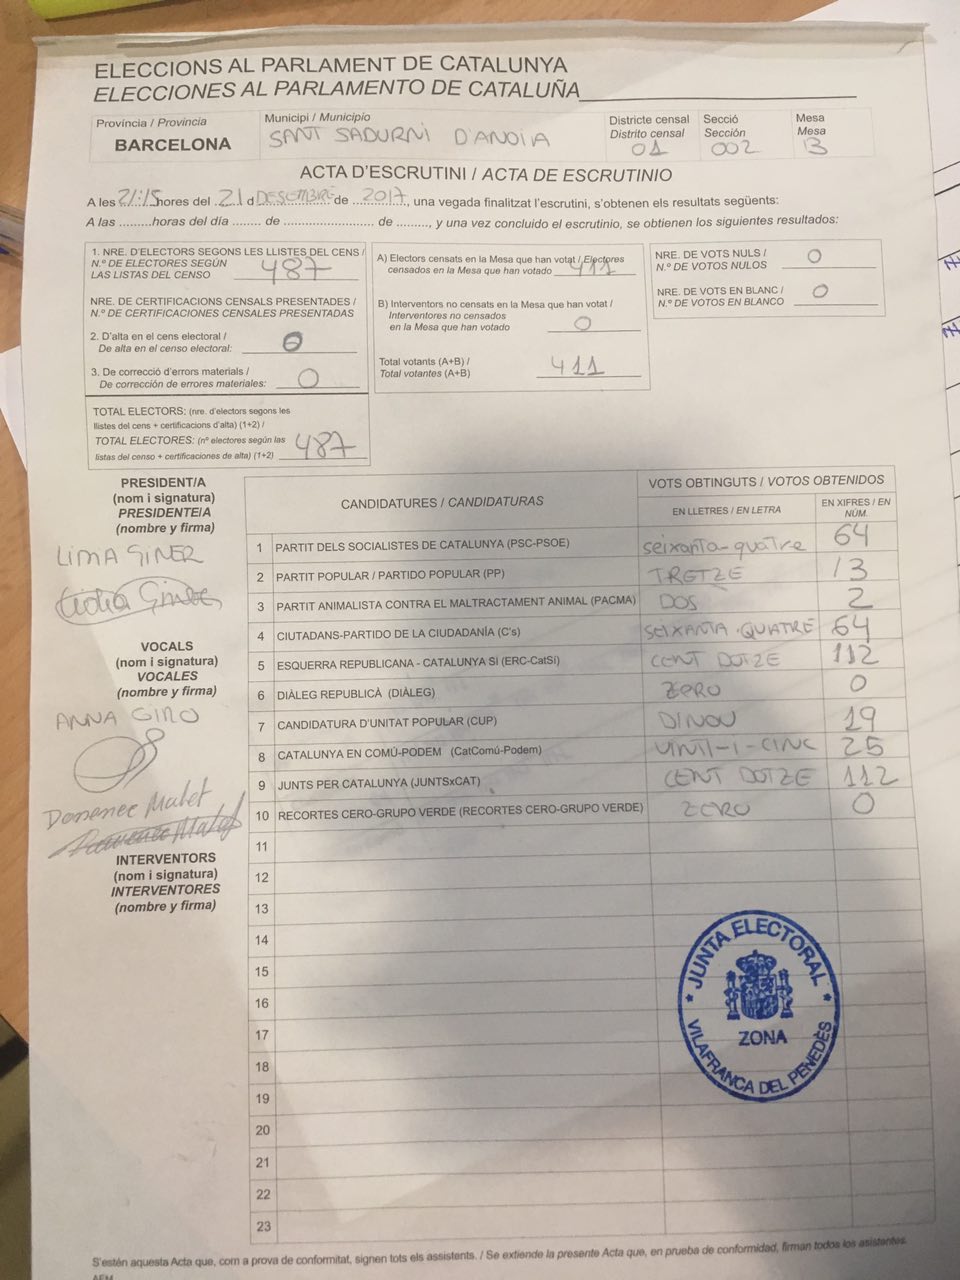 ELECCIONS AL PARLAMENT DE CATALUNYA
ELECCIONES AL PARLAMENTO DE CATALUÑA
Província / Provincia
BARCELONA
Municipi / Municipio
SANT SADURNI D'ANOIA
Districte censal
Distrito censal
01
Secció
Sección
002
Mesa
Mesa
B
ACTA D'ESCRUTINI / ACTA DE ESCRUTINIO
A les 21:15 hores del 21 d DESEMBRE de 2017, una vegada finalitzat l'escrutini, s'obtenen els resultats següents:
A las .........horas del día ........ de ........................ de ........., y una vez concluido el escrutinio, se obtienen los siguientes resultados:
1. NRE. D'ELECTORS SEGONS LES LLISTES DEL CENS /
N.º DE ELECTORES SEGÚN
LAS LISTAS DEL CENSO 487
NRE. DE CERTIFICACIONS CENSALS PRESENTADES /
N.º DE CERTIFICACIONES CENSALES PRESENTADAS
2. D'alta en el cens electoral /
De alta en el censo electoral: 0
3. De correcció d'errors materials /
De corrección de errores materiales: 0
TOTAL ELECTORS: (nre. d'electors segons les
llistes del cens + certificacions d'alta) (1+2) /
TOTAL ELECTORES: (nº electores según las
listas del censo + certificaciones de alta) (1+2) 487
A) Electors censats en la Mesa que han votat / Electores
censados en la Mesa que han votado 411
B) Interventors no censats en la Mesa que han votat /
Interventores no censados
en la Mesa que han votado 0
Total votants (A+B) /
Total votantes (A+B) 411
NRE. DE VOTS NULS /
N.º DE VOTOS NULOS 0
NRE. DE VOTS EN BLANC /
N.º DE VOTOS EN BLANCO 0
PRESIDENT/A
(nom i signatura)
PRESIDENTE/A
(nombre y firma)
LIMA GINER
VOCALS
(nom i signatura)
VOCALES
(nombre y firma)
ANNA GIRO
Domenec Malet
INTERVENTORS
(nom i signatura)
INTERVENTORES
(nombre y firma)
CANDIDATURES / CANDIDATURAS
VOTS OBTINGUTS / VOTOS OBTENIDOS
EN LLETRES / EN LETRA
EN XIFRES / EN NÚM.
1 PARTIT DELS SOCIALISTES DE CATALUNYA (PSC-PSOE) seixanta-quatre 64
2 PARTIT POPULAR / PARTIDO POPULAR (PP) TRETZE 13
3 PARTIT ANIMALISTA CONTRA EL MALTRACTAMENT ANIMAL (PACMA) DOS 2
4 CIUTADANS-PARTIDO DE LA CIUDADANÍA (C's) SEIXANTA-QUATRE 64
5 ESQUERRA REPUBLICANA - CATALUNYA SÍ (ERC-CatSí) CENT DOTZE 112
6 DIÀLEG REPUBLICÀ (DIÀLEG) ZERO 0
7 CANDIDATURA D'UNITAT POPULAR (CUP) DINOU 19
8 CATALUNYA EN COMÚ-PODEM (CatComú-Podem) VINT-I-CINC 25
9 JUNTS PER CATALUNYA (JUNTSxCAT) CENT DOTZE 112
10 RECORTES CERO-GRUPO VERDE (RECORTES CERO-GRUPO VERDE) ZERO 0
11
12
13
14
15
16
17
18
19
20
21
22
23
JUNTA ELECTORAL
ZONA
VILAFRANCA DEL PENEDÈS
S'estén aquesta Acta que, com a prova de conformitat, signen tots els assistents. / Se extiende la presente Acta que, en prueba de conformidad, firman todos los asistentes.